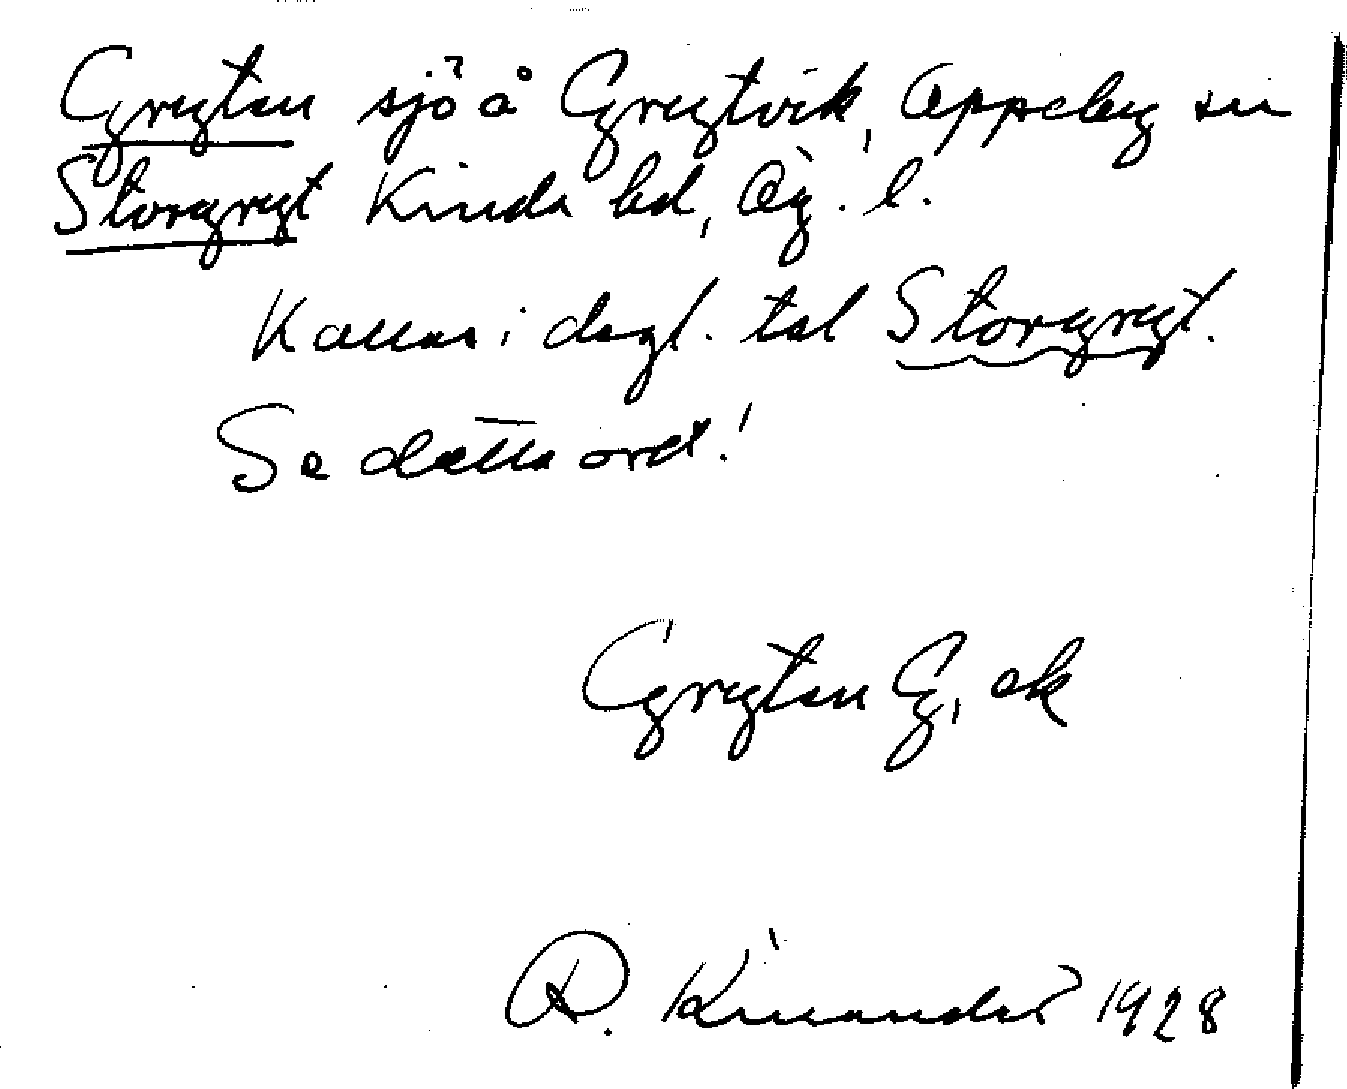 Grytan sjö å Grytvik, Oppeby sn
Storgryt Kinda hd, Ög. l.
Kallas i dagl. tal Storgryt.
Se detta ord!
Grytan G, ek
R. Kinander 1928